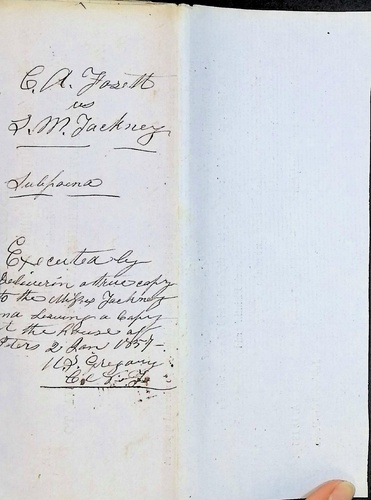 C. A. Fosett
vs
S. M. Tackney
Subpoena
Executed by
Deliverin a true copy
to the Misses Tackney
and leaving a Copy
at the house of
Peters 2 Jan 1857-
Gregory